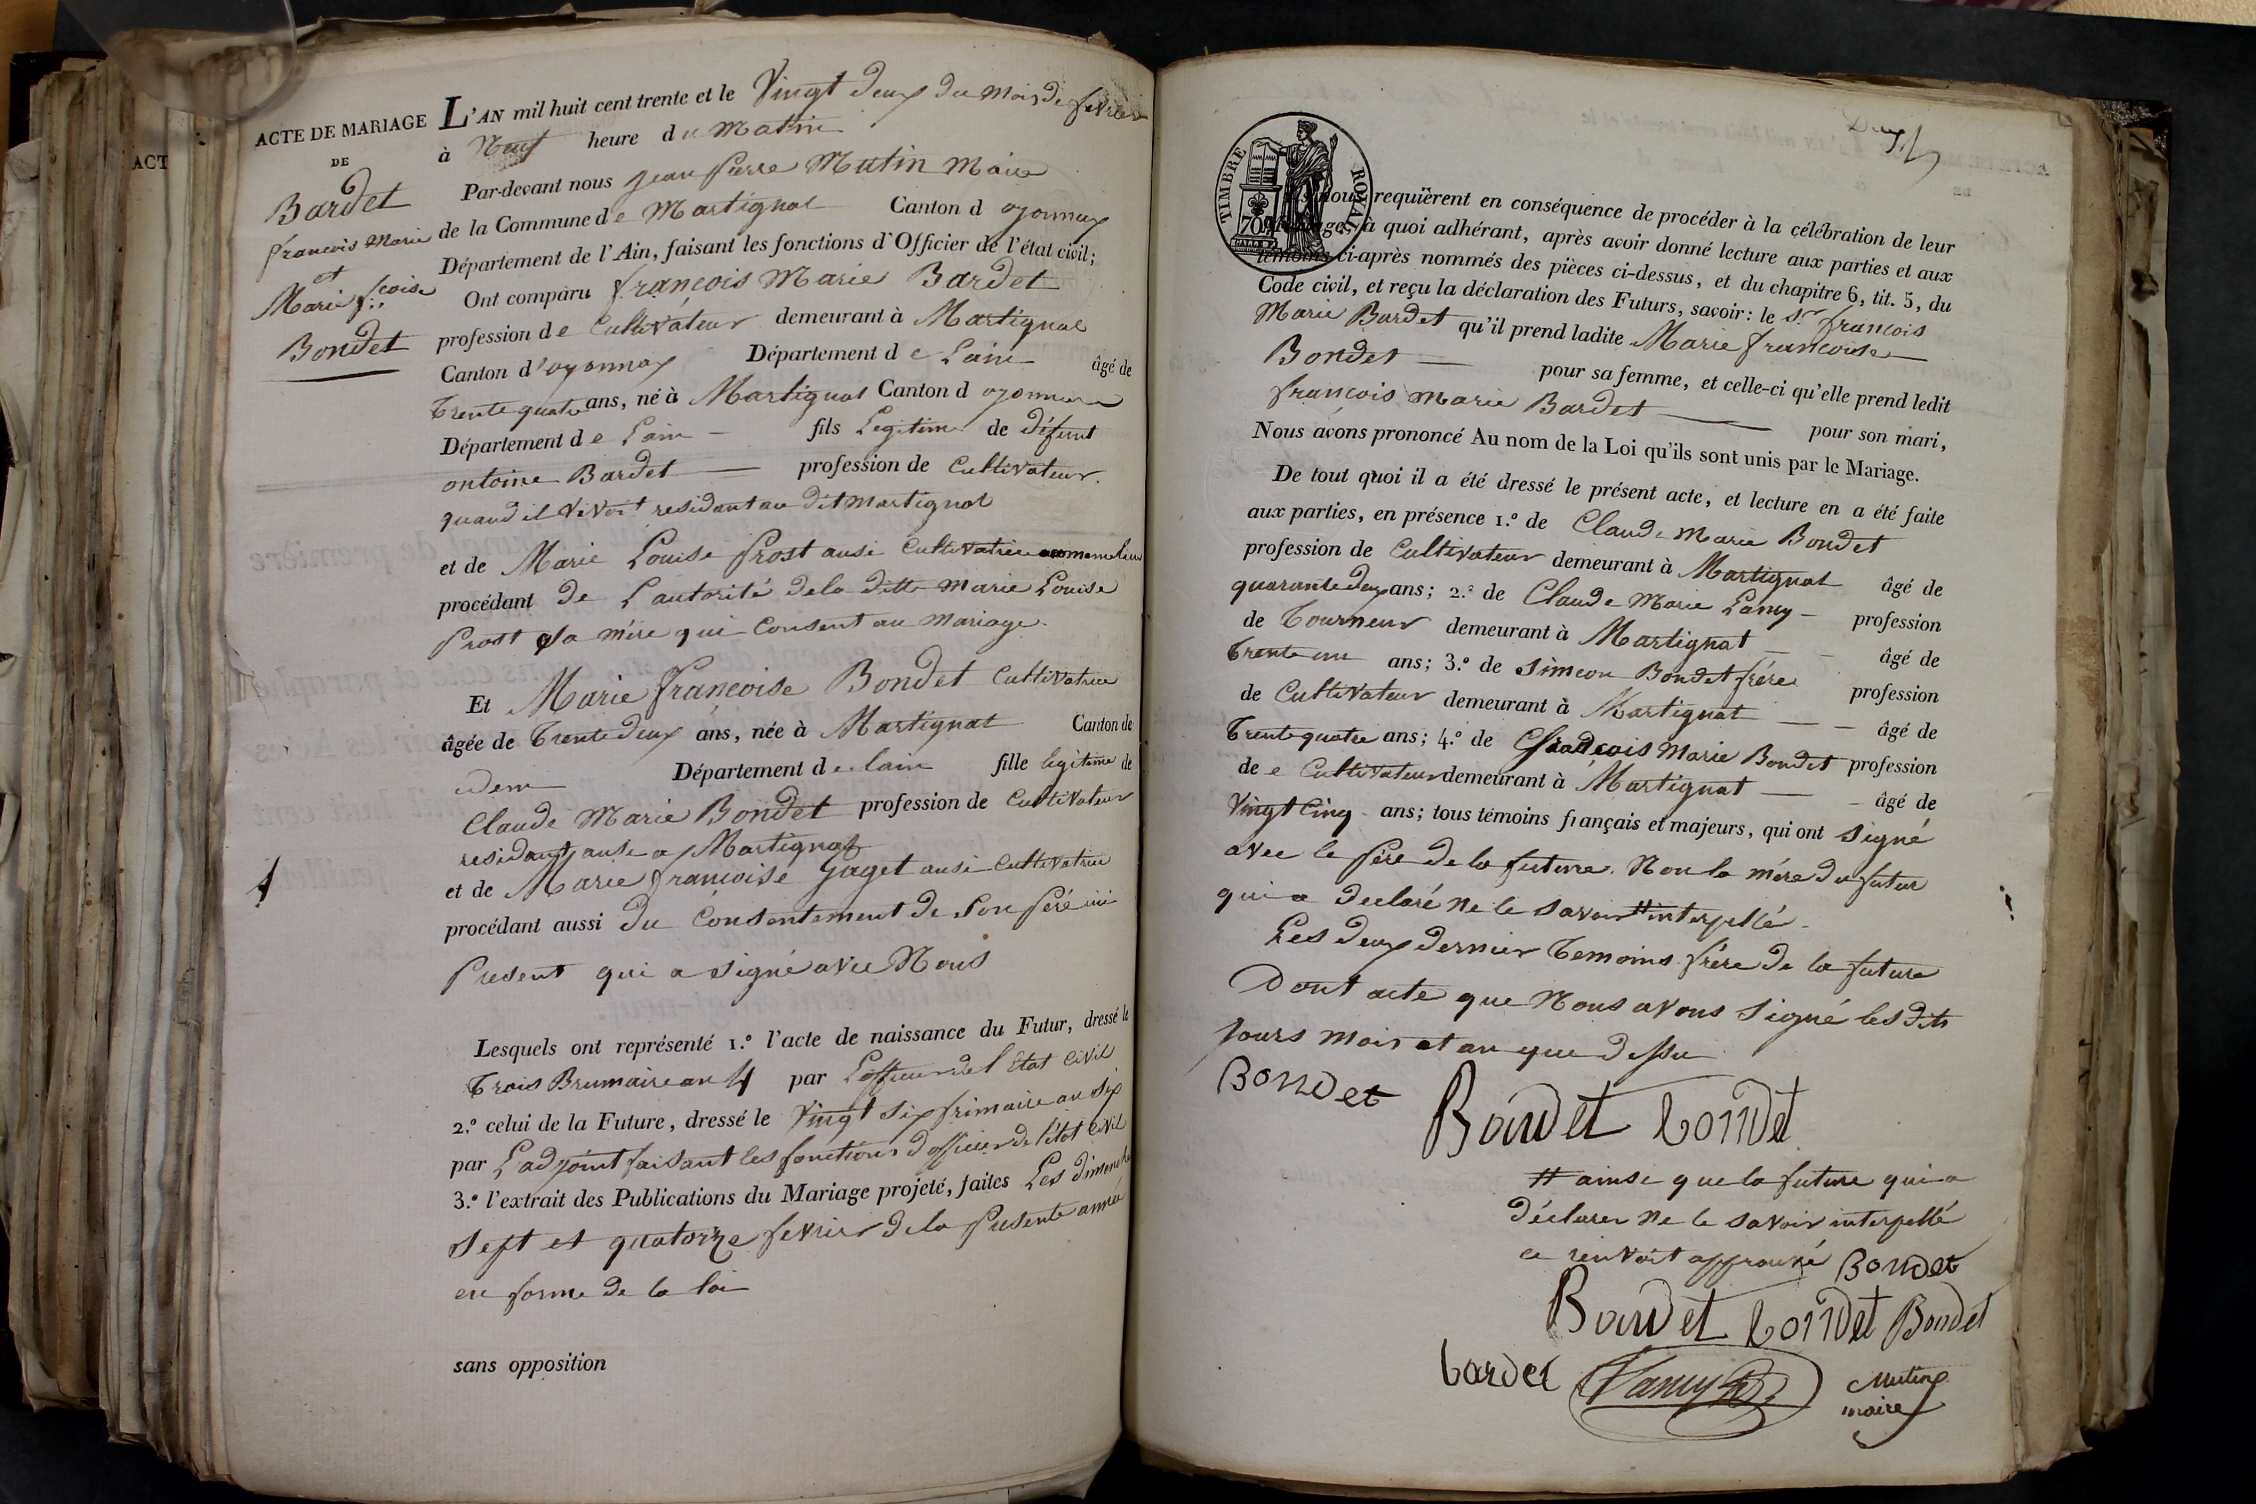 ACT
ACTE DE MARIAGE
DE
Bardet
francois Marie
et
Marie f.çoise
Bondet
L'AN mil huit cent trente et le Vingt deux du mois de fevrier
à Neuf heure du Matin
Par-devant nous jean pierre Mutin Maire
de la Commune de Martignat Canton d oyonnax
Département de l'Ain, faisant les fonctions d'Officier de l'état civil;
Ont comparu françois Marie Bardet
profession de Cultivateur demeurant à Martignat
Canton d'oyonnax Département de Lain âgé de
Trente quatre ans, né à Martignat Canton d oyonnax
Département de Lain fils Legitime de défunt
antoine Bardet profession de Cultivateur.
quand il vivoit residant au dit Martignat
et de Marie Louise Prost ausi Cultivatrice
procédant de L'autorité dela ditte Marie Louise
Prost sa mère qui Consent au Mariage.
Et Marie françoise Bondet Cultivatrice
âgée de Trente deux ans, née à Martignat Canton de
idem Département de lain fille legitime de
Claude Marie Bondet profession de Cultivateur
residant ausi a Martignat
et de Marie françoise Gaget ausi Cultivatrice
procédant aussi du Consentement de son père ici
Present qui a signé avec Nous
Lesquels ont représenté 1.° l'acte de naissance du Futur, dressé le
Trois Brumaire an 4 par L'officier de l'Etat Civil
2.° celui de la Future, dressé le Vingt six frimaire an six
par L'adjoint faisant les fonctions d'officier de l'état civil
3.° l'extrait des Publications du Mariage projeté, faites Les dimanche
Sept et quatorze fevrier de la Presente année
en forme de la loi
sans opposition
Deux
TIMBRE ROYAL
70
nous requièrent en conséquence de procéder à la célébration de leur
mariage; à quoi adhérant, après avoir donné lecture aux parties et aux
témoins ci-après nommés des pièces ci-dessus, et du chapitre 6, tit. 5, du
Code civil, et reçu la déclaration des Futurs, savoir: le S.r francois
Marie Bardet qu'il prend ladite Marie francoise
Bondet pour sa femme, et celle-ci qu'elle prend ledit
françois Marie Bardet pour son mari,
Nous avons prononcé Au nom de la Loi qu'ils sont unis par le Mariage.
De tout quoi il a été dressé le présent acte, et lecture en a été faite
aux parties, en présence 1.° de Claude Marie Bondet
profession de Cultivateur demeurant à Martignat âgé de
quarante deux ans; 2.° de Claude Marie Lamy profession
de Tourneur demeurant à Martignat âgé de
Trente un ans; 3.° de Simeon Bondet frére profession
de Cultivateur demeurant à Martignat âgé de
Trente quatre ans; 4.° de françois Marie Bondet profession
de e Cultivateur demeurant à Martignat âgé de
Vingt Cinq ans; tous témoins français et majeurs, qui ont signé
avec le Père de la future. Non la mére du futur
qui a declaré ne le savoir # interpellé.
Les deux dernier Temoins frère de la future
Dont acte que Nous avons signé les dits
jours mois et an que dessu
Bondet Bondet bondet
# ainse que la future qui a
déclarer ne le savoir interpellé
ce renvoit approuvé Bondet
Bondet bondet Bondet
bardet Lamy Mutin
maire